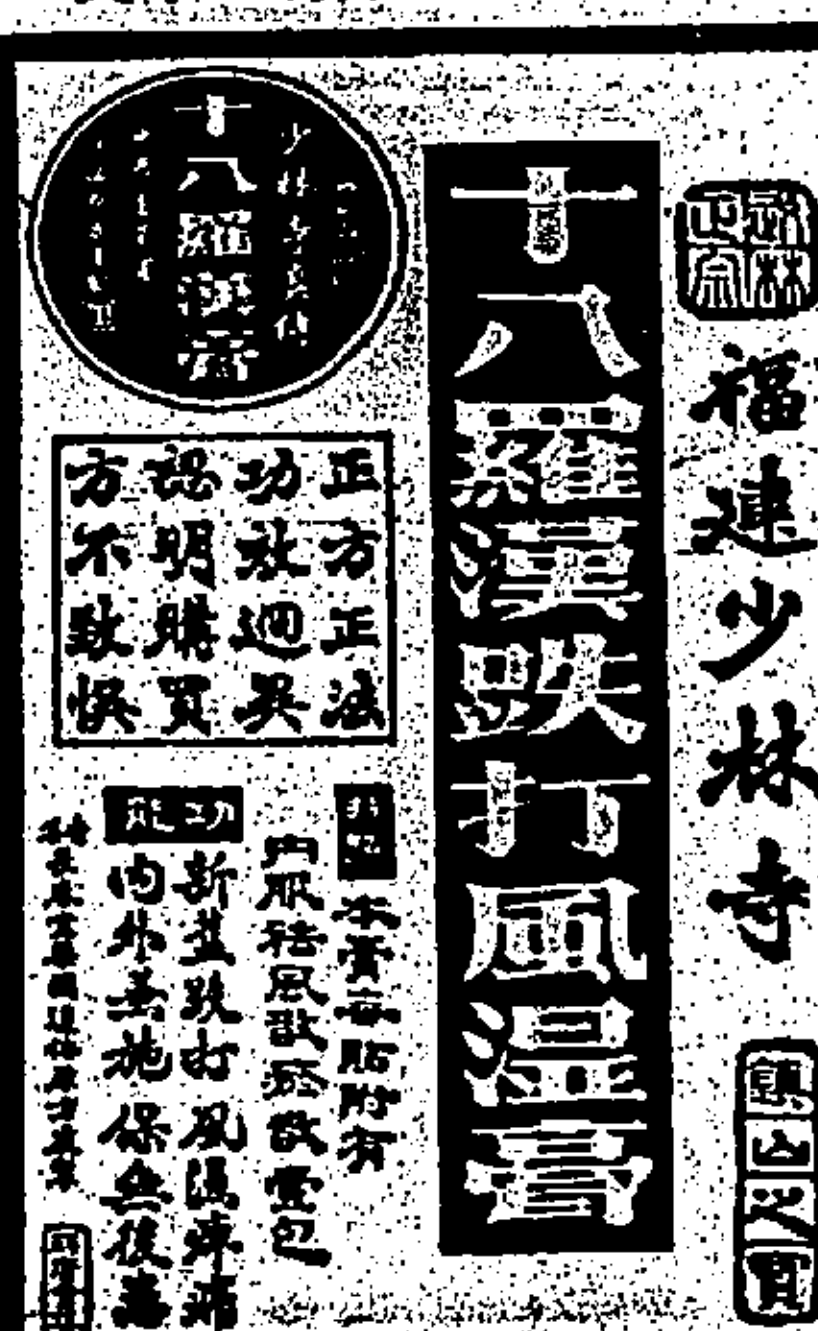 武林正宗
福建少林寺
鎮山之寶
十八羅漢跌打風濕膏
十八羅漢膏
少林寺真傳
正方正法
功效迥異
認明購買
方不致悞
本膏每貼附有
內服祛風散瘀散壹包
功能
新舊跌打風濕疼痛
內外兼施保無後患